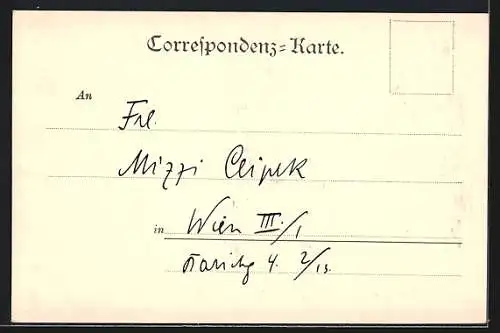 Correspondenz=Karte.
An
Frl.
Mizzi
in Wien III./1
4. 2/13.